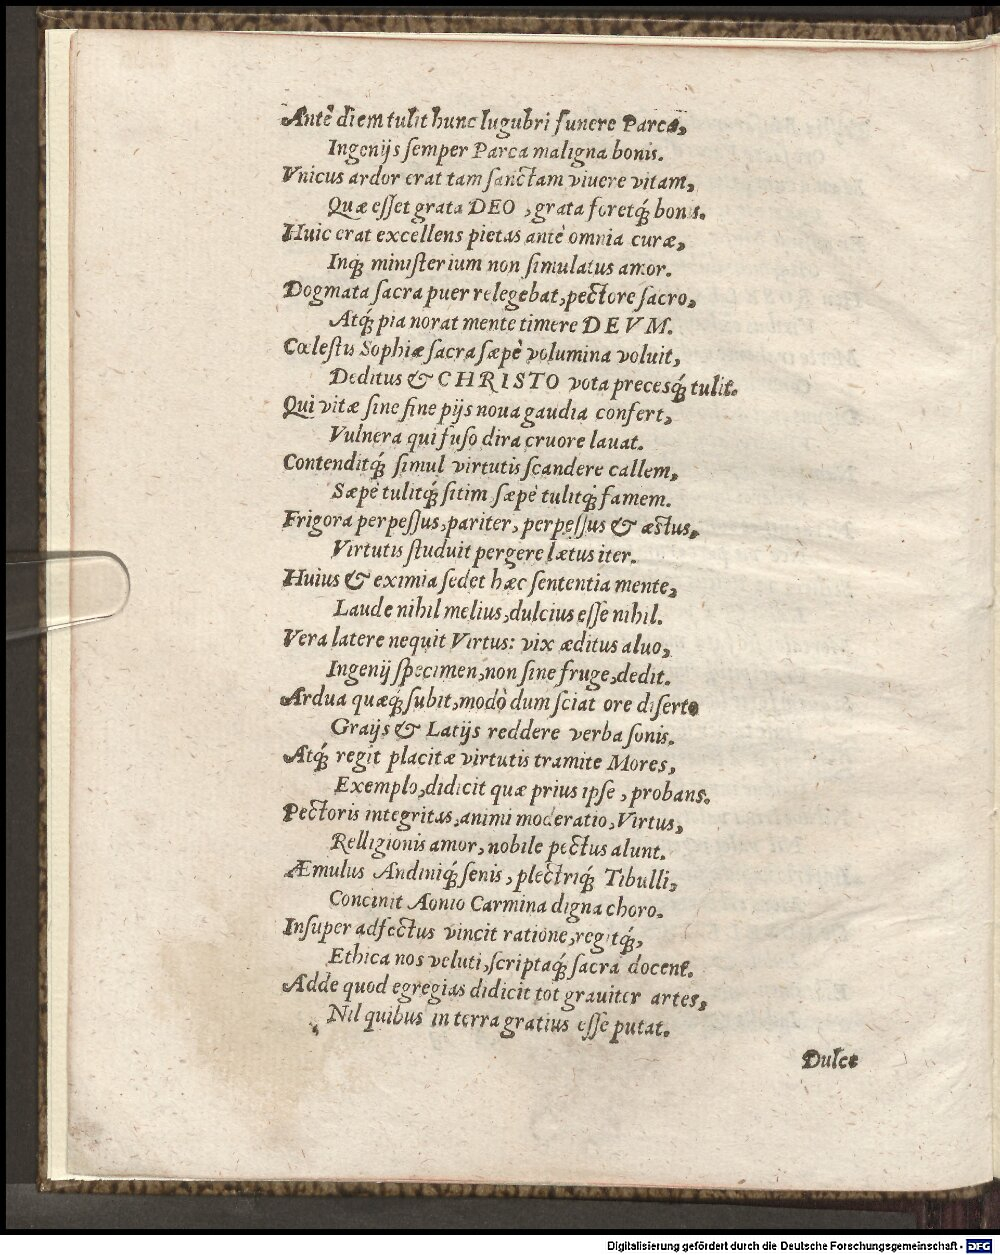 Antè diem tulit hunc lugubri funere Parca,
Ingenijs ſemper Parca maligna bonis.
Vnicus ardor erat tam ſanctam viuere vitam,
Quæ eſſet grata DEO, grata foretq́; bonis.
Huic erat excellens pietas antè omnia curæ,
Inq́; miniſterium non ſimulatus amor.
Dogmata ſacra puer relegebat, pectore ſacro,
Atq́; pia norat mente timere DEVM.
Cœleſtis Sophiæ ſacra ſæpè volumina voluit,
Deditus & CHRISTO vota precesq́; tulit.
Qui vitæ ſine fine pijs noua gaudia confert,
Vulnera qui fuſo dira cruore lauat.
Contenditq́; ſimul virtutis ſcandere callem,
Sæpè tulitq́; ſitim ſæpè tulitq́; famem.
Frigora perpeſſus, pariter, perpeſſus & æſtus,
Virtutis ſtuduit pergere lætus iter.
Huius & eximia ſedet hæc ſententia mente,
Laude nihil melius, dulcius eſſe nihil.
Vera latere nequit Virtus: vix æditus aluo,
Ingenij ſpecimen, non ſine fruge, dedit.
Ardua quæq́; ſubit, modò dum ſciat ore diſerto
Graijs & Latijs reddere verba ſonis.
Atq́; regit placitæ virtutis tramite Mores,
Exemplo, didicit quæ prius ipſe, probans.
Pectoris integritas, animi moderatio, Virtus,
Relligionis amor, nobile pectus alunt.
Æmulus Andiniq́; ſenis, plectriq́; Tibulli,
Concinit Aonio Carmina digna choro.
Inſuper adfectus vincit ratione, regitq́;,
Ethica nos veluti, ſcriptaq́; ſacra docent.
Adde quod egregias didicit tot grauiter artes,
Nil quibus in terra gratius eſſe putat.
Dulce
Digitalisierung gefördert durch die Deutsche Forschungsgemeinschaft - DFG